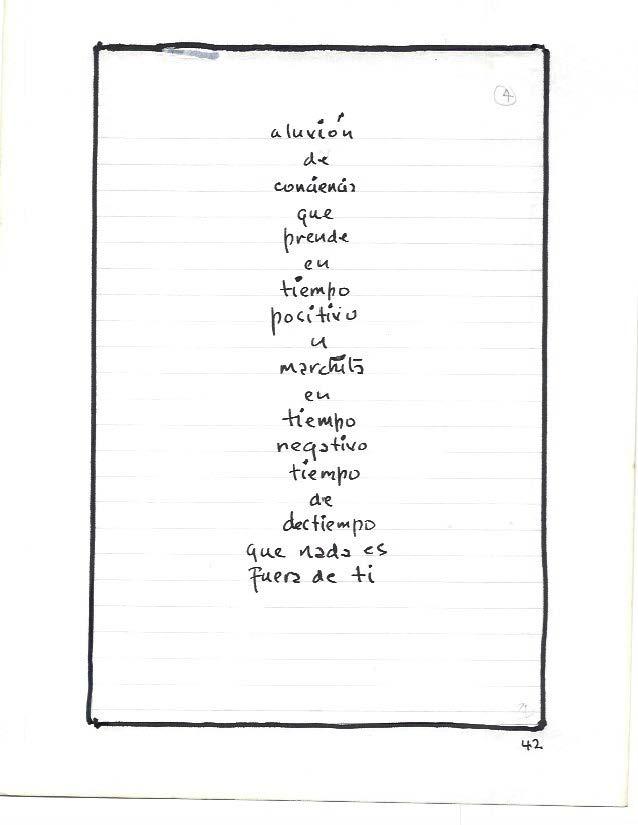 4
aluvión
de
conciencia
que
prende
en
tiempo
positivo
u
marchita
en
tiempo
negativo
tiempo
de
destiempo
que nada es
fuera de ti
42